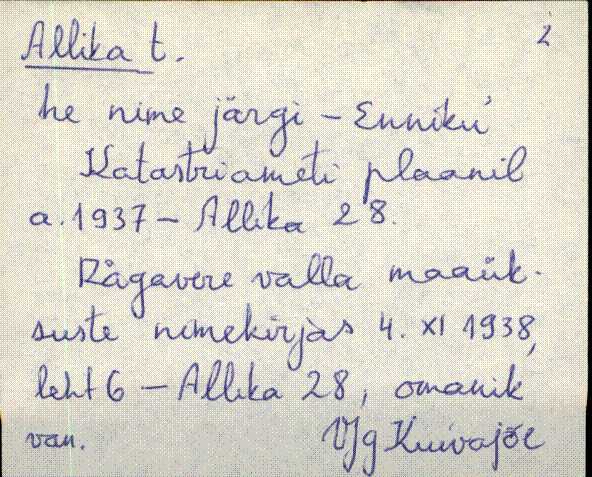 2
Allika t.
he nime järgi – Enniku
Katastriameti plaanil
a. 1937 – Allika 28.
Rägavere valla maaük-
suste nimekirjas 4. XI 1938,
leht 6 – Allika 28, omanik
van. VJg Kuivajõe